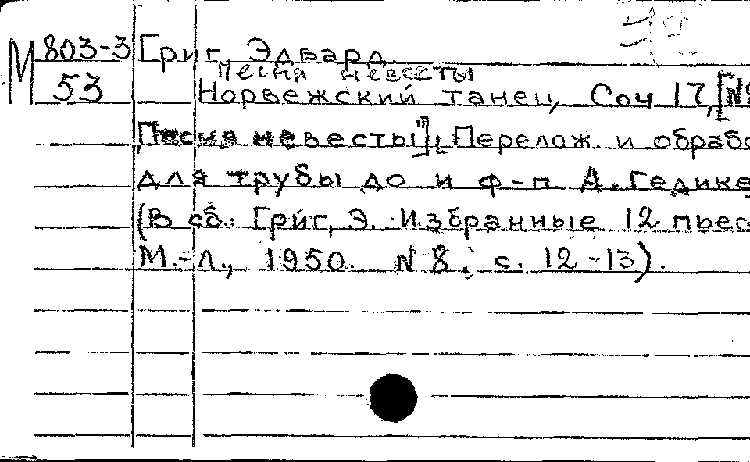 М 803-3 Григ, Эдвард.
Песня невесты
53 Норвежский танец, Соч 17, [№
"Песня невесты"]. Перелож. и обраб
для трубы до и ф-п А. Гедике
(В сб.: Григ, Э. Избранные 12 пьес
М.-Л., 1950. N 8, с. 12-13).